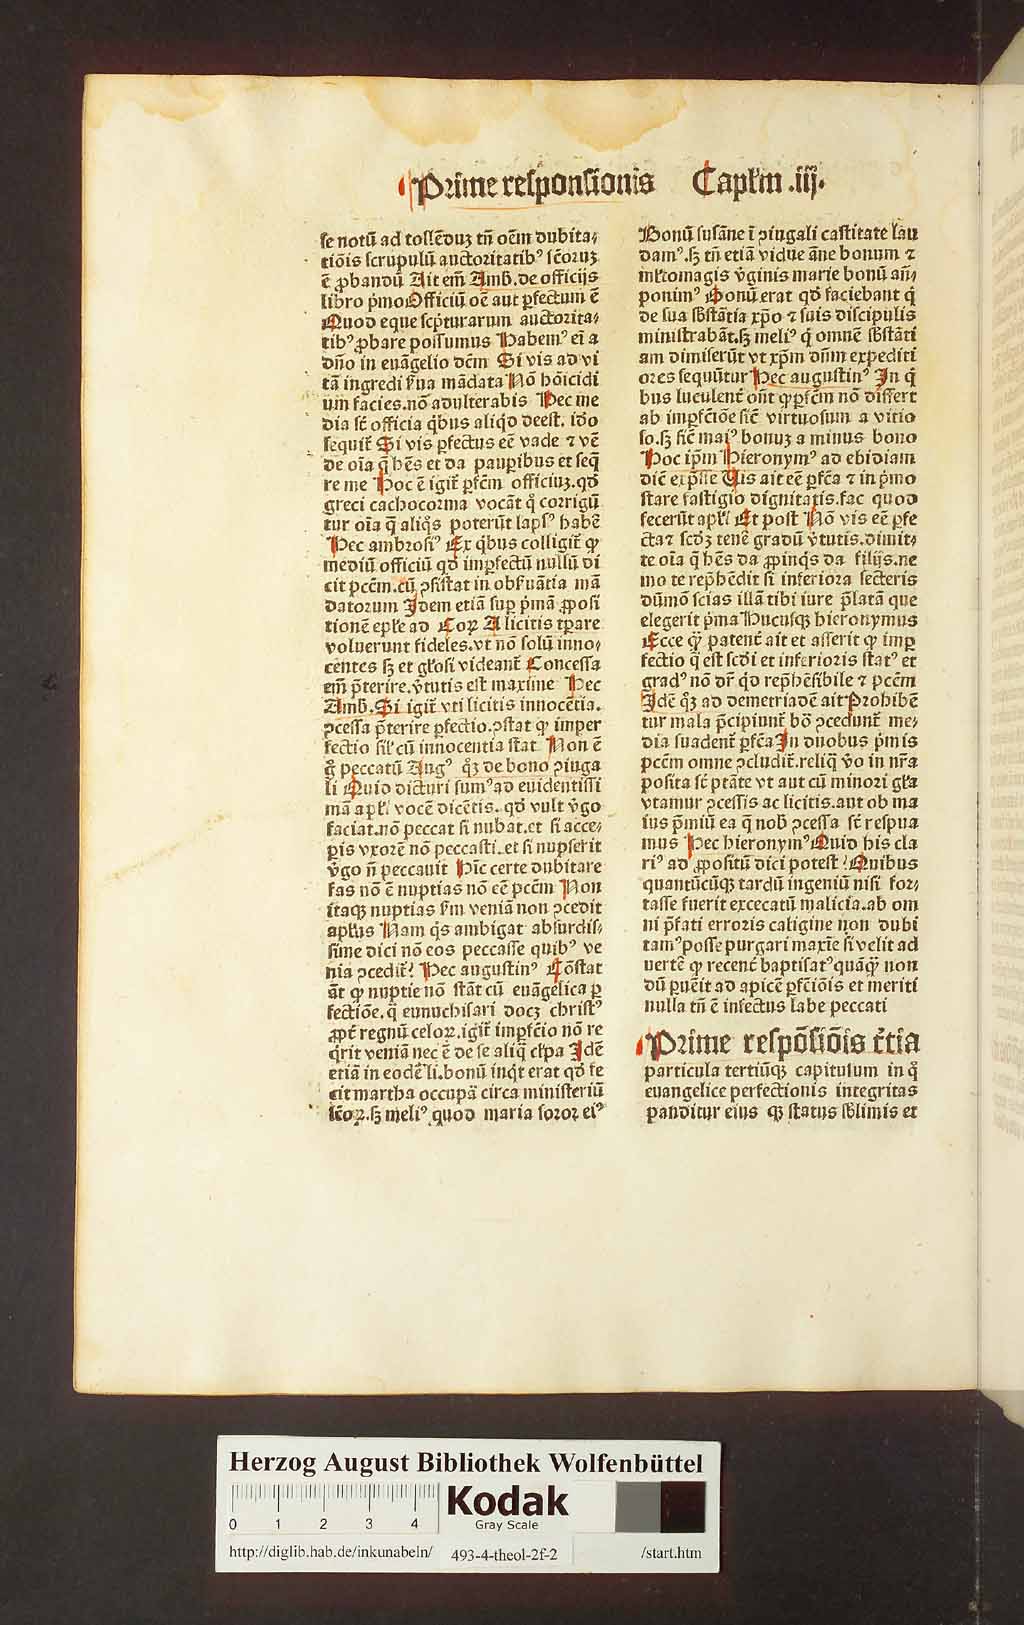 Prime responsionis Capl'm .iij.
se notū ad tollēduꝫ tn̄ oēm dubita⸗
tiōis scrupulū auctoritatibꝰ sc̄oruꝫ
ē ꝓbandū Ait em̄ Amb. de officijs
libro p̄mo Officiū oē aut ꝑfectum ē
Quod eque scp̄turarum auctorita⸗
tibꝰ ꝓbare possumus Habemꝰ ei̅ a
dn̄o in euāgelio dc̄m Si vis ad vi
tā ingredi ẜua mādata Nō hōicidi
um facies. nō adulterabis Hec me
dia sc̄t officia q̇bus aliq̇d deest. iḋo
sequit᷑ Si vis ꝑfectus eē vade ⁊ vē
de oīa q̄ hēs et da pauꝑibus et seq̄
re me Hoc ē igit᷑ ꝑfc̄m officiuꝫ. qḋ
greci cachocorma vocāt q̊ corrigū
tur oīa q̄ aliq̇s poterūt lapsꝰ habē
Hec ambrosiꝰ Ex q̇bus colligit᷑ ꝙ
mediū officiū qḋ imꝑfectū nullū di
cit pccm̄. cū ꝯsistat in obẜuātia mā
datorum Idem etiā suꝑ p̄mā ꝓposi
tionē ep̄le ad Coꝝ A licitis tꝑare
voluerunt fideles. vt nō solū inno⸗
centes sꝫ et gl'osi videant᷑ Concessa
em̄ p̄terire. v̓tutis est maxime Hec
Amb. Si igit᷑ vti licitis innocētia.
ꝯcessa p̄terire ꝑfectio. ꝯstat ꝙ imper
fectio sil' cū innocentia stat Non ē
g̊ peccatū Augꝰ q̊ꝫ de bono ꝯiuga
li Quid dicturi sumꝰ ad euidentissi
mā apl'i vocē dicētis. qḋ vult v̓go
faciat. nō peccat si nubat. et si acce⸗
ꝑis vxorē nō peccasti. et si nupserit
v̓go n̄ peccauit Hic̄ certe dubitare
fas nō ē nuptias nō eē pccm̄ Non
itaqꝫ nuptias ẜm veniā non ꝯcedit
apl'us Nam q̇s ambigat absurdis⸗
sime dici nō eos peccasse quibꝰ ve
nia ꝯcedit᷑? Hec augustinꝰ Cōstat
āt ꝙ nuptie nō stāt cū euāgelica ꝑ
fectiōe. q̄ eunuchisari docꝫ christꝰ
ꝓpt᷑ regnū celoꝝ. igit᷑ imꝑfc̄io nō re
q̇rit veniā nec ē de se aliq̄ cl'pa Idē
etiā in eodē li. bonū inq̇t erat qḋ fe
cit martha occupā circa ministeriū
sc̄oꝝ. sꝫ meliꝰ quod maria soror eiꝰ
Bonū susāne ī ꝯiugali castitate lau
damꝰ. sꝫ tn̄ etiā vidue āne bonum ⁊
ml'tomagis v̓ginis marie bonū an̄⸗
ponimꝰ Bonū erat qḋ faciebant q̇
de sua sb̄stātia xp̄o ⁊ suis discipulis
ministrabāt. sꝫ meliꝰ q̇ omnē sb̄stāti
am dimiserūt vt xp̄m dn̄m expediti
ores sequūtur Hec augustinꝰ In q̇
bus luculent᷑ on̄t ꝙ ꝑfc̄m nō differt
ab imꝑfc̄iōe sic̄ virtuosum a vitio
so. sꝫ sic̄ maiꝰ bonuꝫ a minus bono
Hoc ip̄m Hieronymꝰ ad ebidiam
dic̄ exp̄sse Uis ait eē ꝑfc̄a ⁊ in p̄mo
stare fastigio dignitatis. fac quod
fecerūt apl'i Et post Nō vis eē ꝑfe
cta ⁊ scd̄ꝫ tenē gradū v̓tutis. dimit⸗
te oīa q̄ hēs da ꝓpinq̇s da filijs. ne
mo te rep̄hēdit si inferiora secteris
dūmō scias illā tibi iure p̄latā que
elegerit p̄ma Hucusqꝫ hieronymus
Ecce q̄ꝫ patent᷑ ait et asserit ꝙ imꝑ
fectio q̄ est scd̄i et inferioris statꝰ et
gradꝰ nō dr̄ q̇d rep̄hēsibile ⁊ pccm̄
Idē q̊ꝫ ad demetriadē ait Prohibē
tur mala p̄cipiunt᷑ bō ꝯcedunt᷑ me⸗
dia suadent᷑ ꝑfc̄a In duobus p̄mis
pccm̄ omne ꝯcludit᷑. reliq̄ v̓o in nr̄a
posita sc̄t ptāte vt aut cū minori gl'a
vtamur ꝯcessis ac licitis. aut ob ma
ius p̄miū ea q̄ nob̄ ꝯcessa sc̄t respua
mus Hec hieronymꝰ Quid his cla
riꝰ ad ꝓpositū dici potest? Quibus
quantūcūqꝫ tardū ingeniū nisi for⸗
tasse fuerit excecatū malicia. ab om
ni p̄fati erroris caligine non dubi
tamꝰ posse purgari maxīe si velit ad
uertē ꝙ recent᷑ baptisatꝰ quāq̄ꝫ non
dū ꝑuēit ad apicē ꝑfc̄iōis et meriti
nulla tn̄ ē infectus labe peccati
Prime respōsiōis t᷑tia
particula tertiūqꝫ capitulum in q̊
euangelice perfectionis integritas
panditur eius qꝫ status sb̄limis et
Herzog August Bibliothek Wolfenbüttel
0 1 2 3 4
Kodak
Gray Scale
http://diglib.hab.de/inkunabeln/ 493-4-theol-2f-2 /start.htm